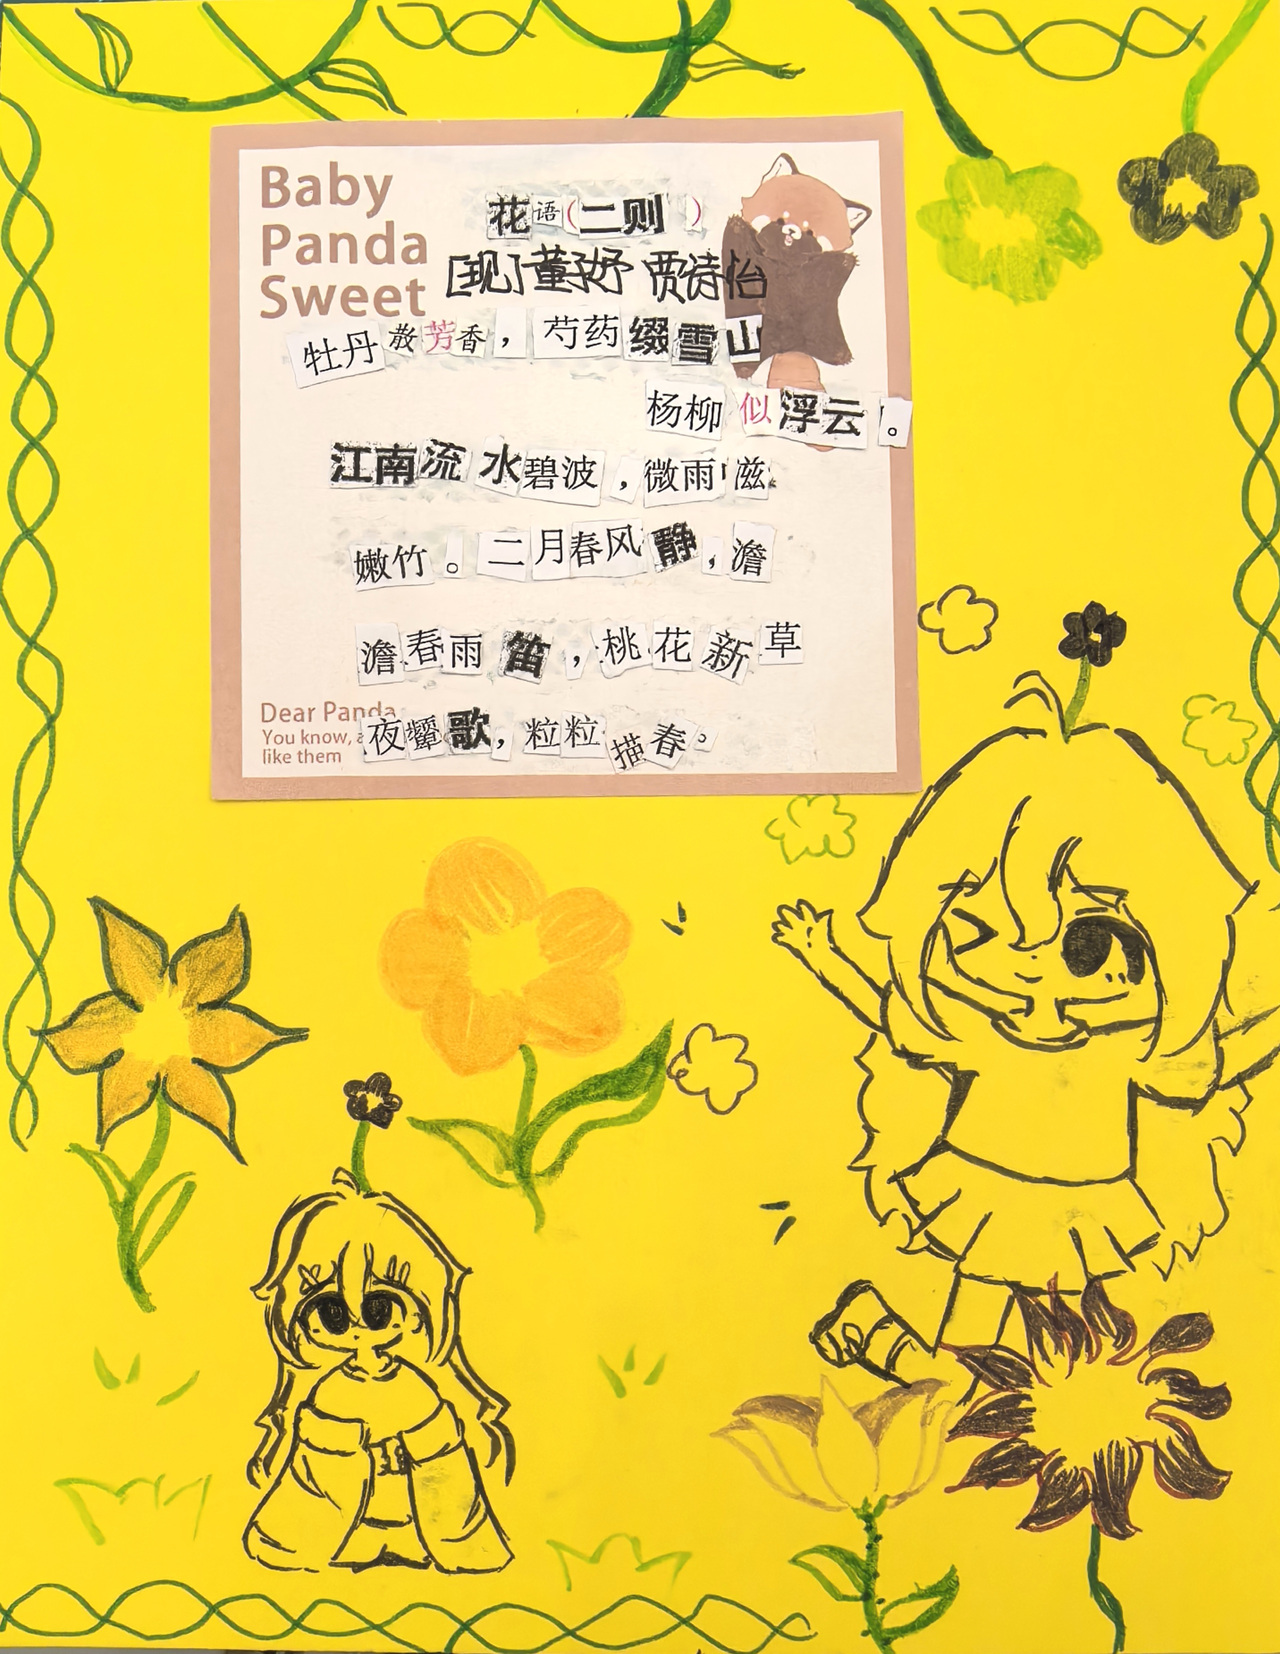 Baby
Panda
Sweet
花语(二则)
[现]董妤 贾诗怡
牡丹散芳香，芍药缀雪山
杨柳似浮云。
江南流水碧波，微雨滋
嫩竹。二月春风静，澹
澹春雨笛，桃花新草
夜颦歌，粒粒描春。
Dear Panda
You know, a
like them